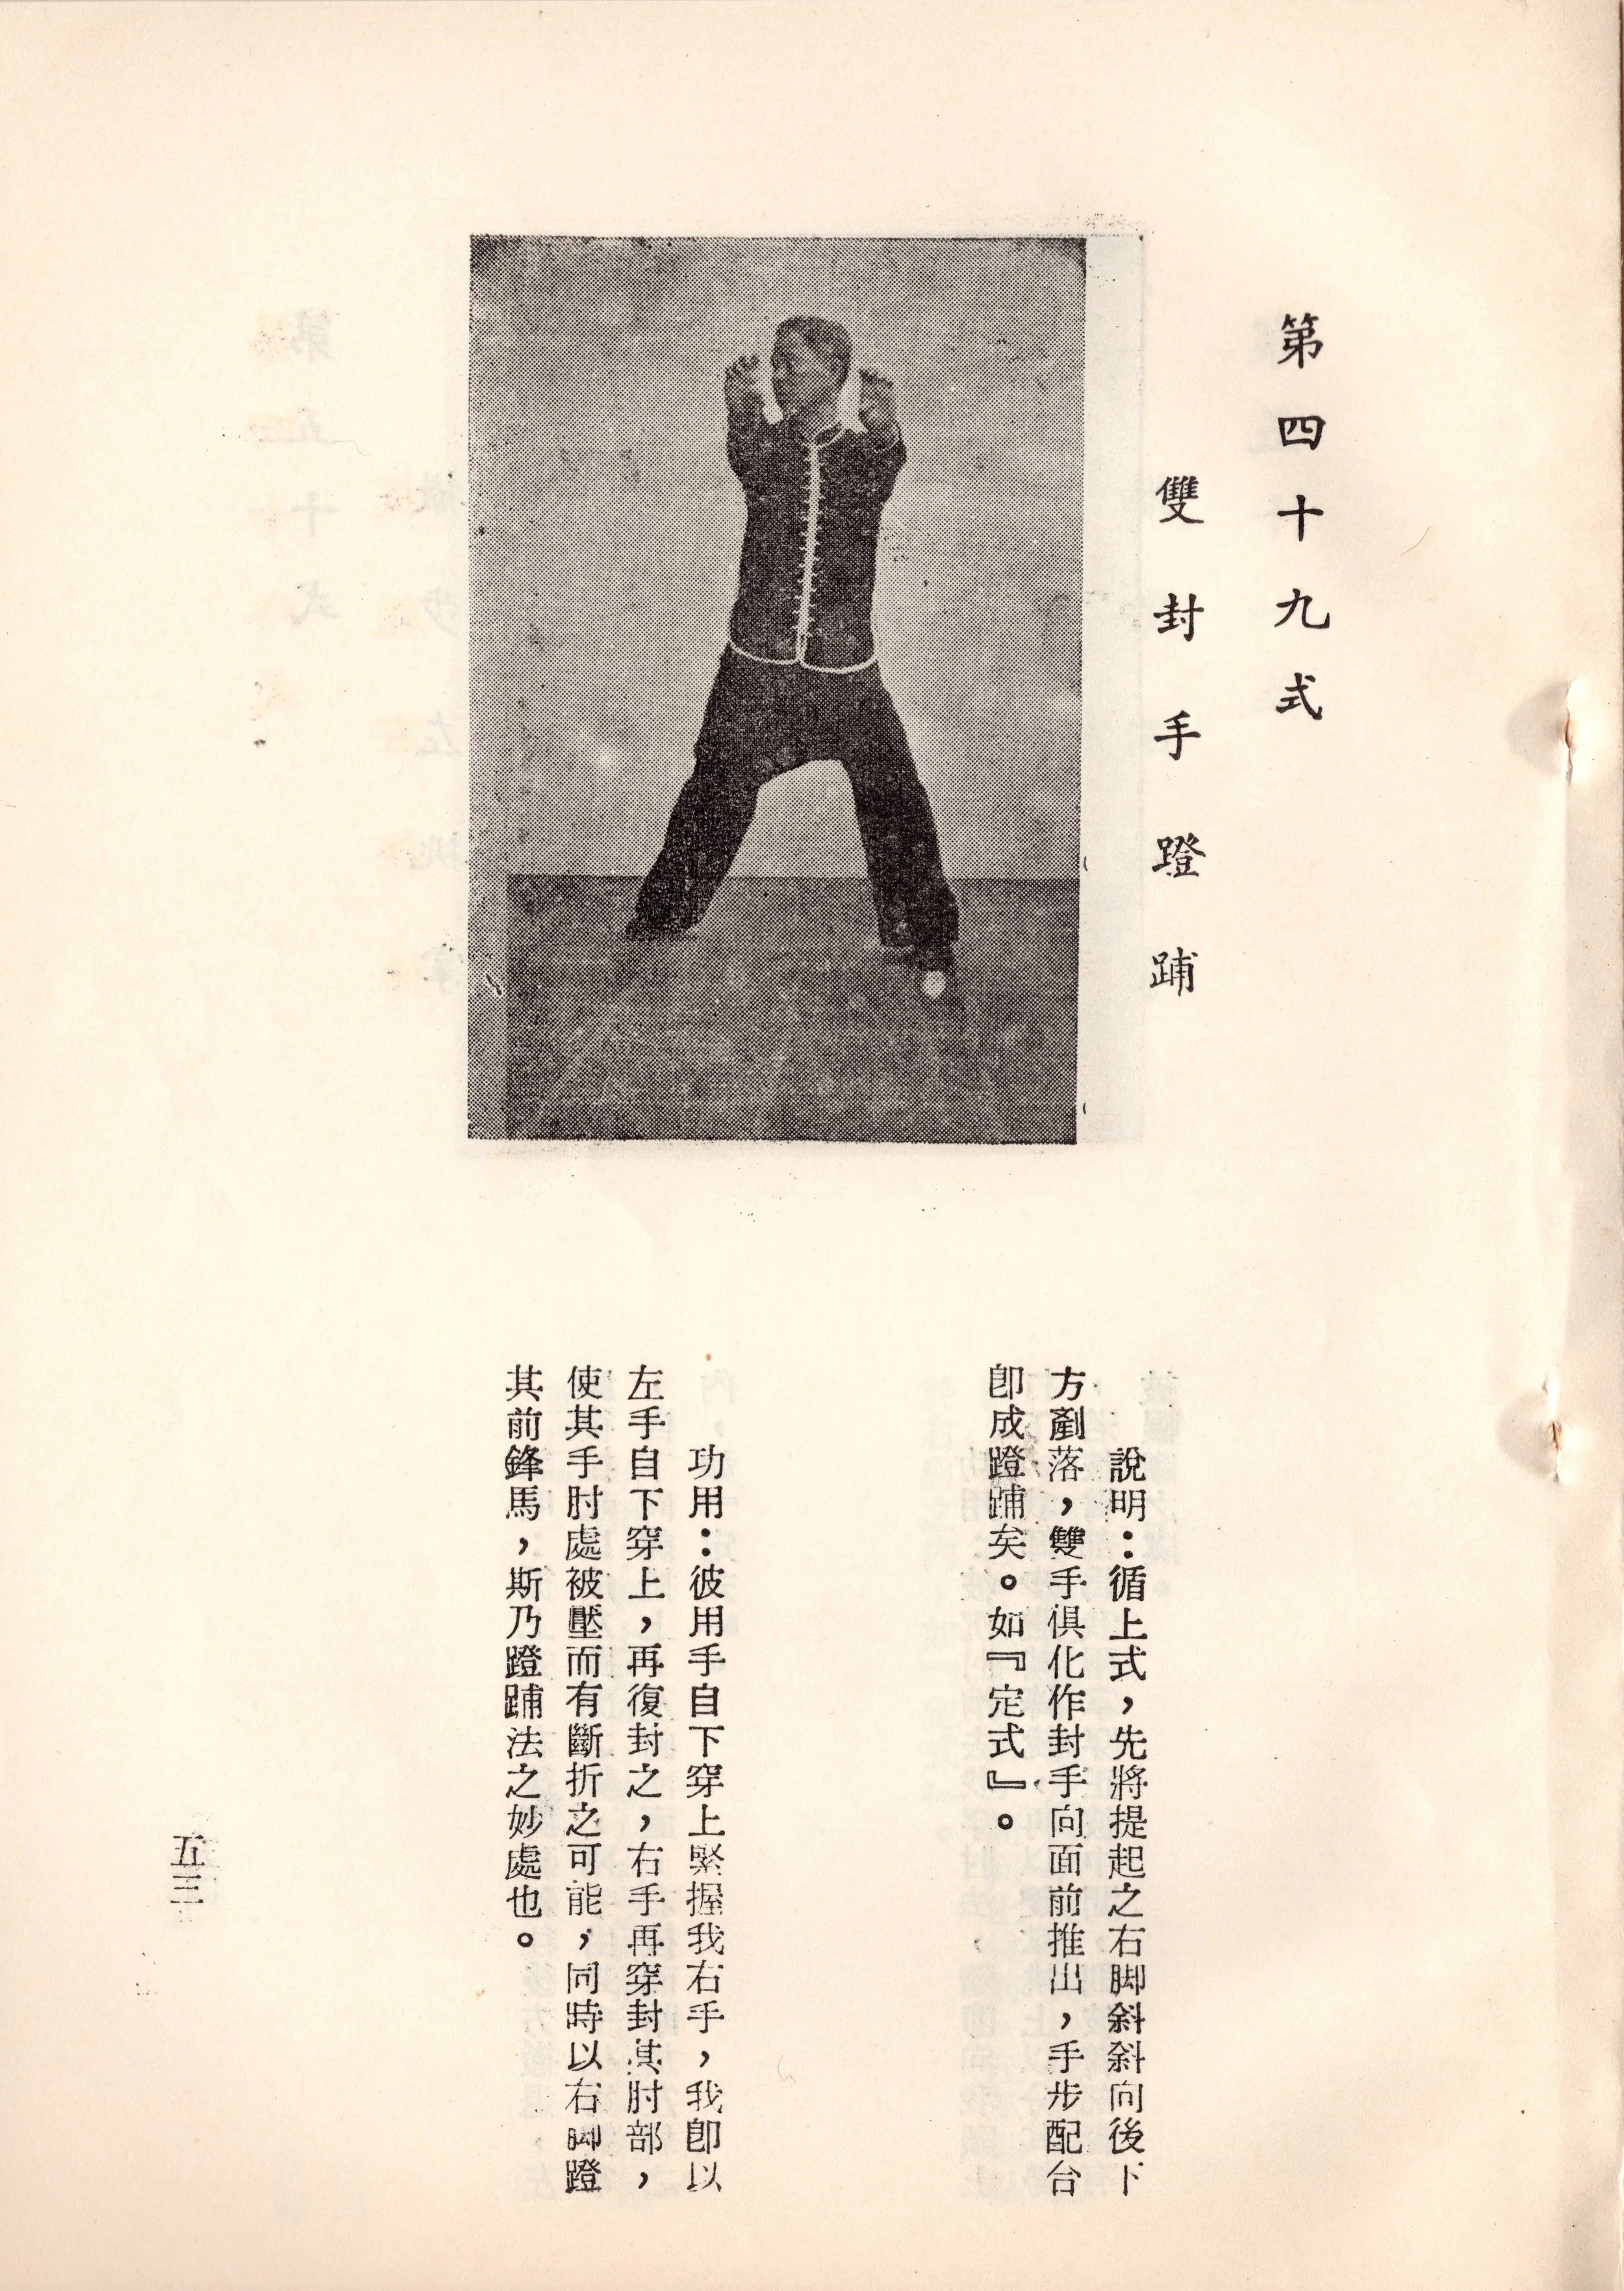 第四十九式
雙封手蹬踊
說明：循上式，先將提起之右脚斜斜向後下
方剷落，雙手俱化作封手向面前推出，手步配合
卽成蹬踊矣。如『定式』。
功用：彼用手自下穿上緊握我右手，我卽以
左手自下穿上，再復封之，右手再穿封其肘部，
使其手肘處被壓而有斷折之可能，同時以右脚蹬
其前鋒馬，斯乃蹬踊法之妙處也。
五三